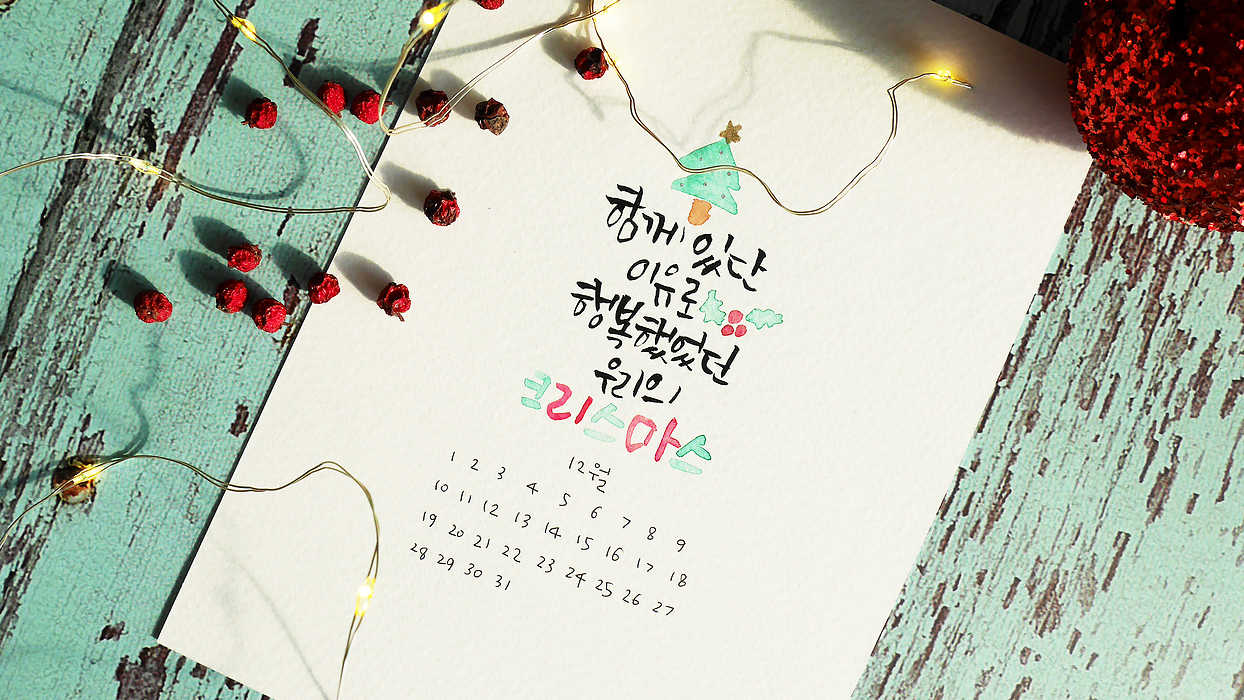 함께 있단
이유로
행복했었던
우리의
크리스마스
12월
1 2 3 4 5 6 7 8 9
10 11 12 13 14 15 16 17 18
19 20 21 22 23 24 25 26 27
28 29 30 31